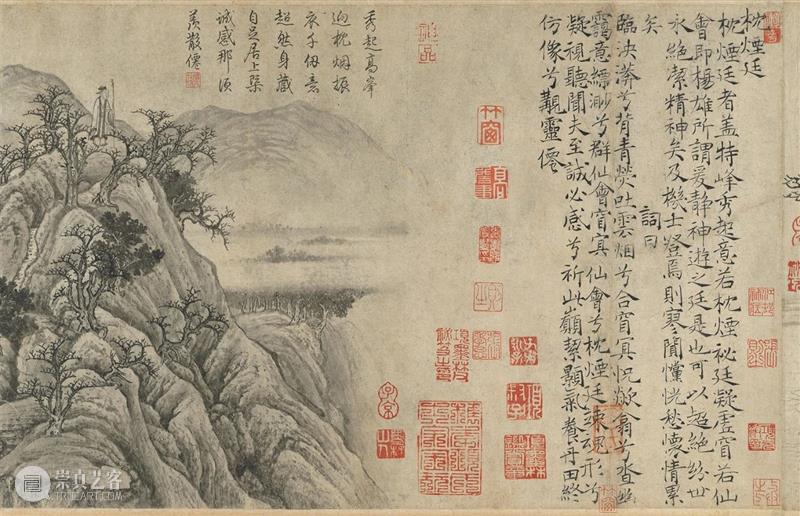 枕煙廷
枕煙廷者蓋特峰秀起意若枕煙秘廷凝虛窅若仙
會即楊雄所謂爰靜神遊之廷是也可以超絕紛世
永絕潔精神矣及機士登焉則寥闃戃恍愁懷情累
矣
詞曰
臨泱漭兮背青熒吐雲烟兮合窅冥怳欻翕兮沓幽
靄意縹渺兮群仙會窅冥仙會兮枕煙廷竦魂形兮
凝視聽聞夫至誠必感兮祈此巔絜顥氣養丹田終
仿像兮覯靈僊
秀起高峯
迥枕烟振
衣千仞意
超然身藏
自足居上槩
誠感那須
羨散僊
竹窗
子京
崇真艺客